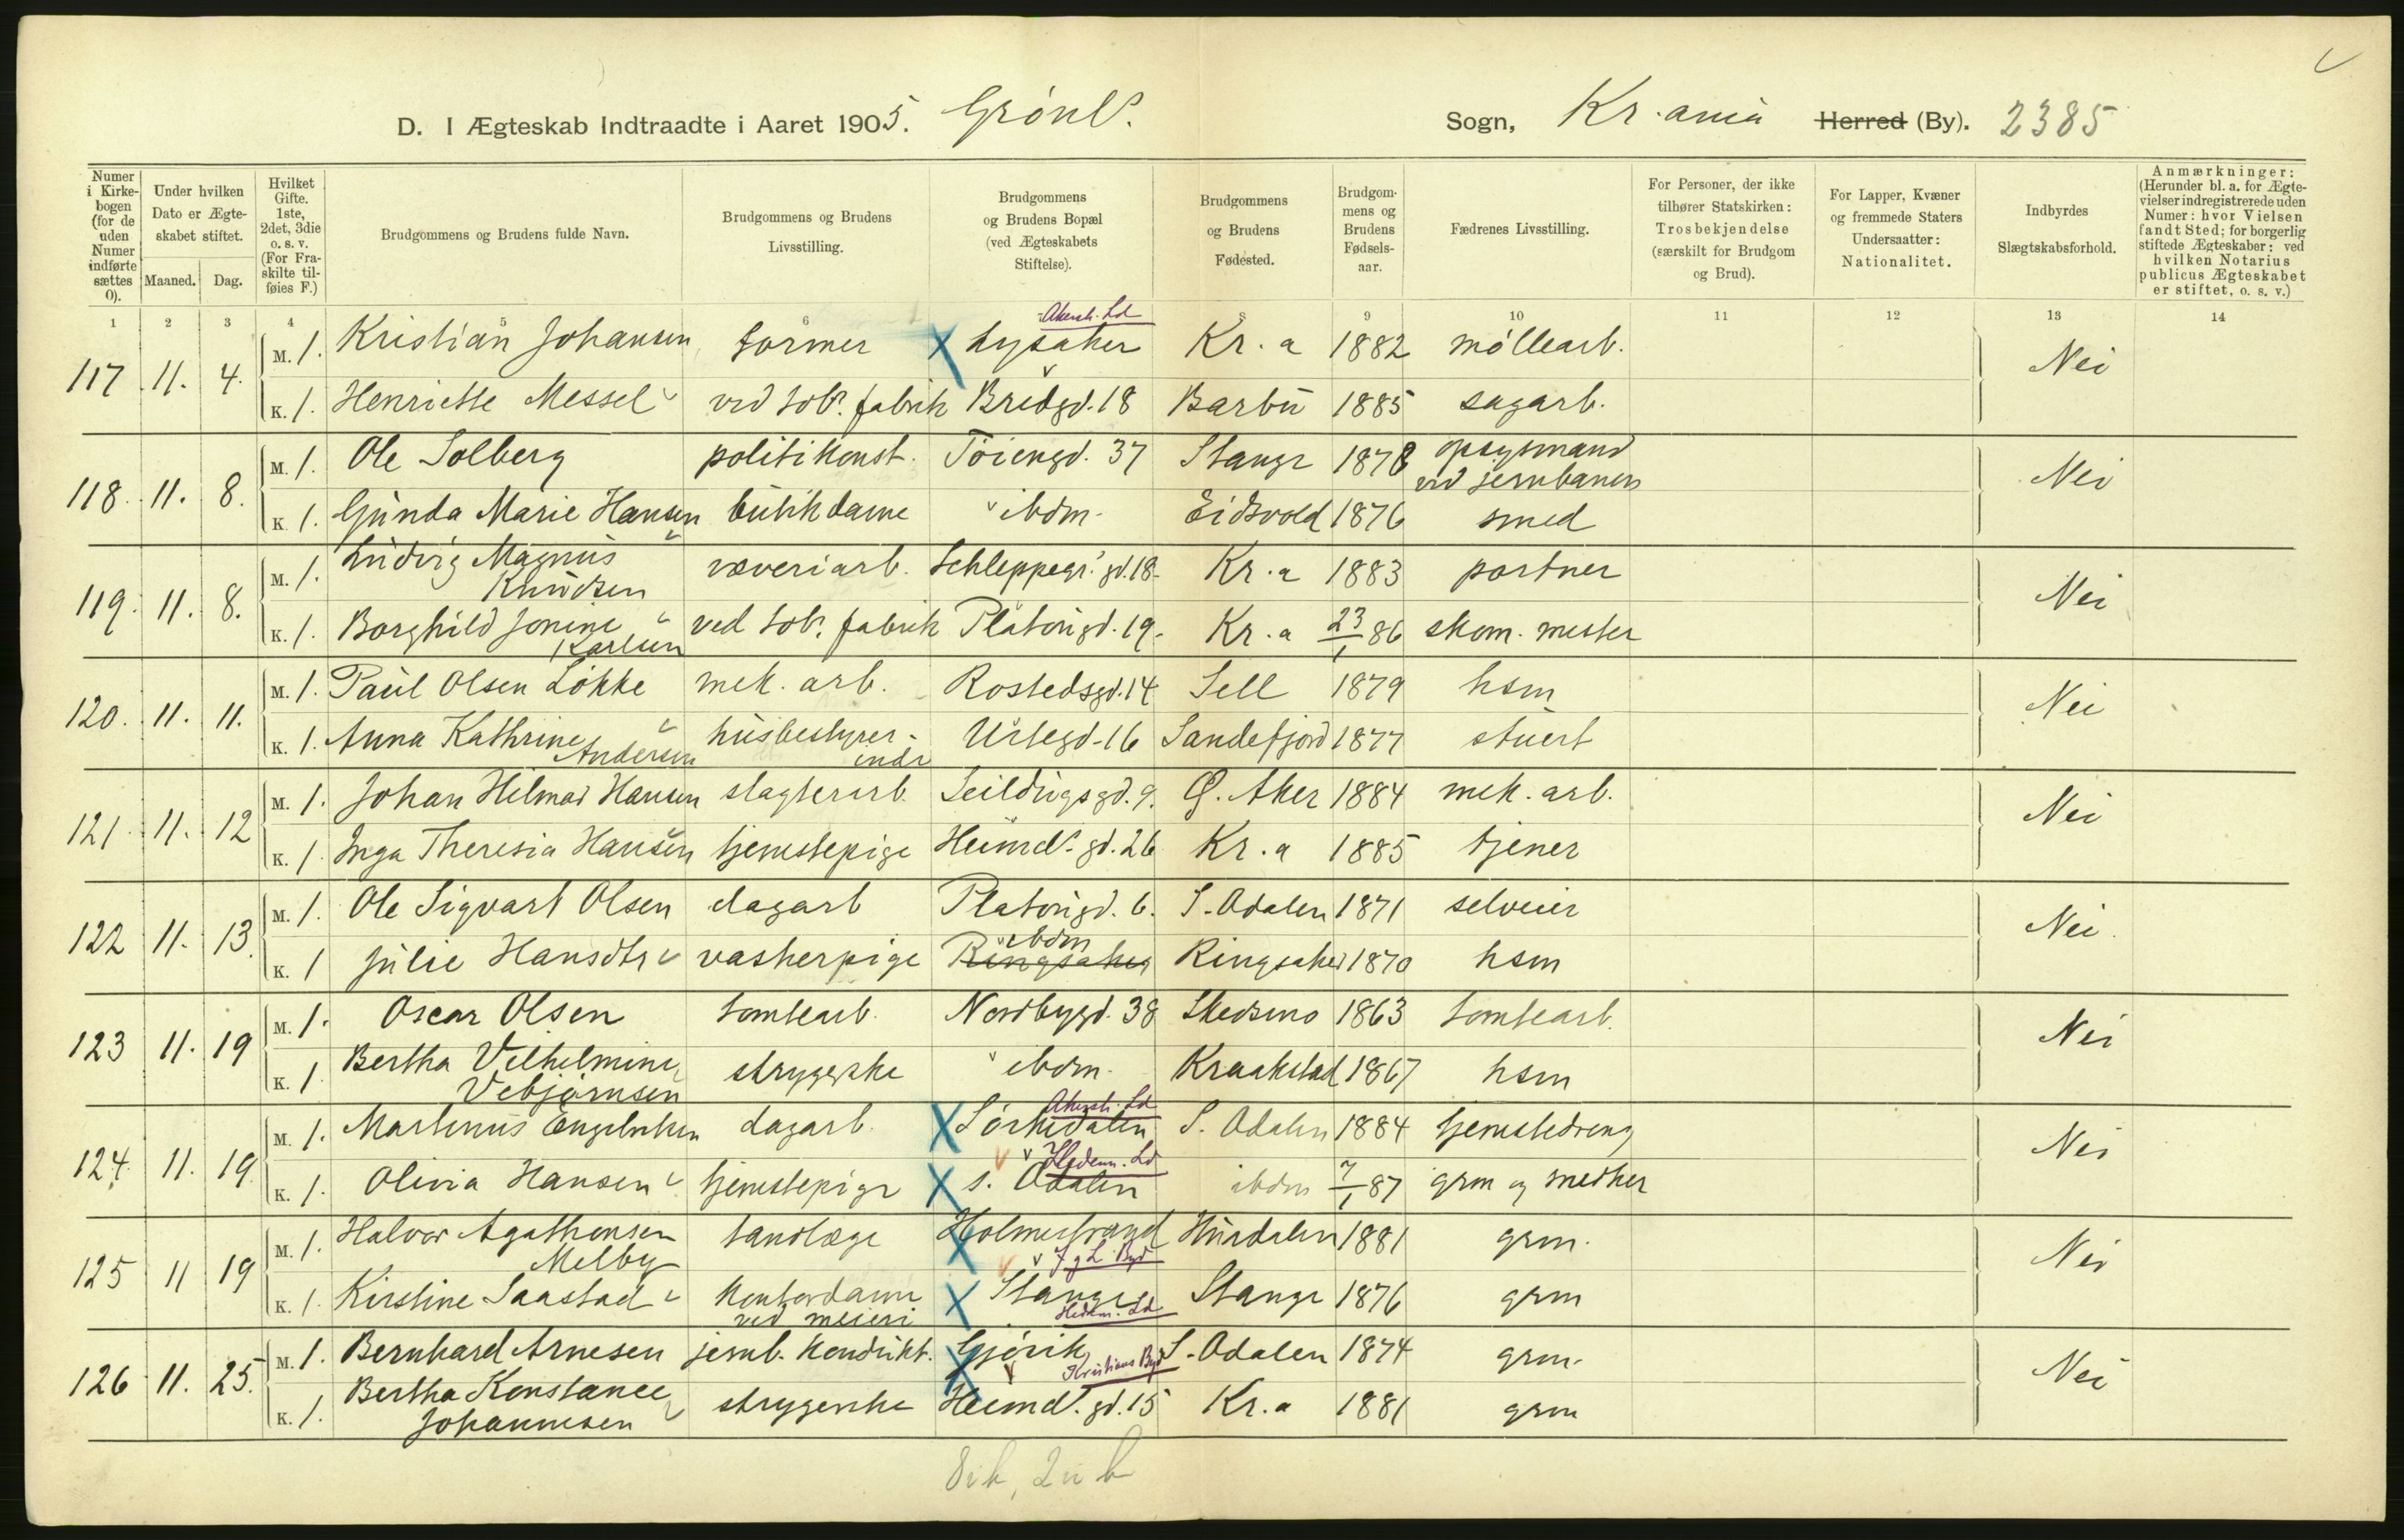 D. I Ægteskab Indtraadte i Aaret 1905. Grønl.
Sogn, Kr.ania Herred (By). 2385
Numer i Kirkebogen (for de uden Numer indførte sættes 0).
Under hvilken Dato er Ægteskabet stiftet.
Maaned. Dag.
Hvilket Gifte. 1ste, 2det, 3die o. s. v. (For Fraskilte tilføies F.)
Brudgommens og Brudens fulde Navn.
Brudgommens og Brudens Livsstilling.
Brudgommens og Brudens Bopæl (ved Ægteskabets Stiftelse).
Brudgommens og Brudens Fødested.
Brudgommens og Brudens Fødselsaar.
Fædrenes Livsstilling.
For Personer, der ikke tilhører Statskirken: Trosbekjendelse (særskilt for Brudgom og Brud).
For Lapper, Kvæner og fremmede Staters Undersaatter: Nationalitet.
Indbyrdes Slægtskabsforhold.
Anmærkninger: (Herunder bl. a. for Ægtevielser indregistrerede uden Numer: hvor Vielsen fandt Sted; for borgerlig stiftede Ægteskaber: ved hvilken Notarius publicus Ægteskabet er stiftet, o. s. v.)
1 2 3 4 5 6 8 9 10 11 12 13 14
117 11. 4. M. 1. Kristian Johansen former Lysaker Akersh. Ld Kr.a 1882 møllearb. Nei
K. 1. Henriette Messel ved tob. fabrik Bredgd. 18 Barbu 1885 sagarb.
118. 11. 8. M. 1. Ole Solberg politikonst. Tøiengd. 37 Stange 1878 opsynsmand ved jernbanen Nei
K. 1. Gunda Marie Hansen butikdame ibdm. Eidsvold 1876 smed
119. 11. 8. M. 1. Ludvig Magnus Knudsen væveriarb. Schleppegr. gd. 18. Kr.a 1883 portner Nei
K. 1. Borghild Jonine Karlsen ved tob. fabrik Platougd. 19. Kr.a 23/1 86 skom. mester
120. 11. 11. M. 1. Paul Olsen Løkke mek. arb. Rostedsgd. 14 Sell 1879 hsm Nei
K. 1. Anna Kathrine Andersen husbestyrerinde Urtegd. 16 Sandefjord 1877 stuert
121. 11. 12 M. 1. Johan Hilmar Hansen slagterarb. Seildugsgd. 9. Ø. Aker 1884 mek. arb. Nei
K. 1. Inga Theresia Hansen tjenestepige Heimd. gd. 26 Kr.a 1885 tjener
122 11. 13. M. 1. Ole Sigvart Olsen dagarb Platougd. 6. S. Odalen 1871 selveier Nei.
K. 1 Julie Hansdtr vaskerpige Ringsaker ibdm Ringsaker 1870 hsm
123 11. 19 M. 1. Oscar Olsen tomtearb. Nordbygd. 38 Skedsmo 1863 tomtearb. Nei
K. 1 Bertha Vilhelmine Vebjørnsen strygerske ibdm. Kraakstad 1867 hsm
124. 11. 19. M. 1. Martinus Engebretsen dagarb. Sørkedalen Akersh. Ld S. Odalen 1884 tjenestedreng Nei
K. 1. Olivia Hansen tjenestepige S. Odalen Hedem. Ld ibdm 7/1 87 grm og snedker
125 11 19 M. 1. Halvor Agathonsen Melby tandlæge Holmestrand J. g L. Byd Hurdalen 1881 grm. Nei
K. 1. Kirstine Saastad kontordame ved meieri Stange Hedem. Ld Stange 1876 grm
126 11. 25. M. 1. Bernhard Arnesen jernb. kondukt. Gjøvik Kristians Byd S. Odalen 1874 grm. Nei
K. 1. Bertha Konstance Johannesen strygerske Heimd. gd. 15 Kr.a 1881 grm